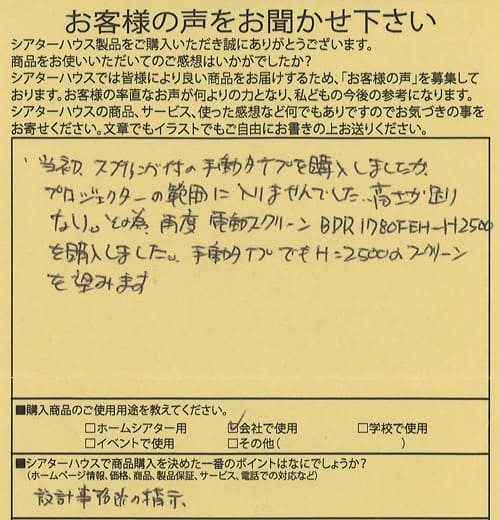 お客様の声をお聞かせ下さい
シアターハウス製品をご購入いただき誠にありがとうございます。
商品をお使いいただいてのご感想はいかがでしたか?
シアターハウスでは皆様により良い商品をお届けするため、「お客様の声」を募集して
おります。お客様の率直なお声が何よりの力となり、私どもの今後の参考になります。
シアターハウスの商品、サービス、使った感想など何でもありですのでお気づきの事を
お寄せください。文章でもイラストでもご自由にお書きの上お送りください。
当初、スプリング付の手動タイプを購入しましたが、
プロジェクターの範囲に入りませんでした。高さが足り
ない。その為、再度 電動スクリーン BDR1780FEH-H2500
を購入しました。手動タイプでもH=2500のスクリーン
を望みます
■購入商品のご使用用途を教えてください。
□ホームシアター用 ☑会社で使用 □学校で使用
□イベントで使用 □その他( )
■シアターハウスで商品購入を決めた一番のポイントはなにでしょうか?
(ホームページ情報、価格、商品、製品保証、サービス、電話での対応など)
設計事務所の指示、